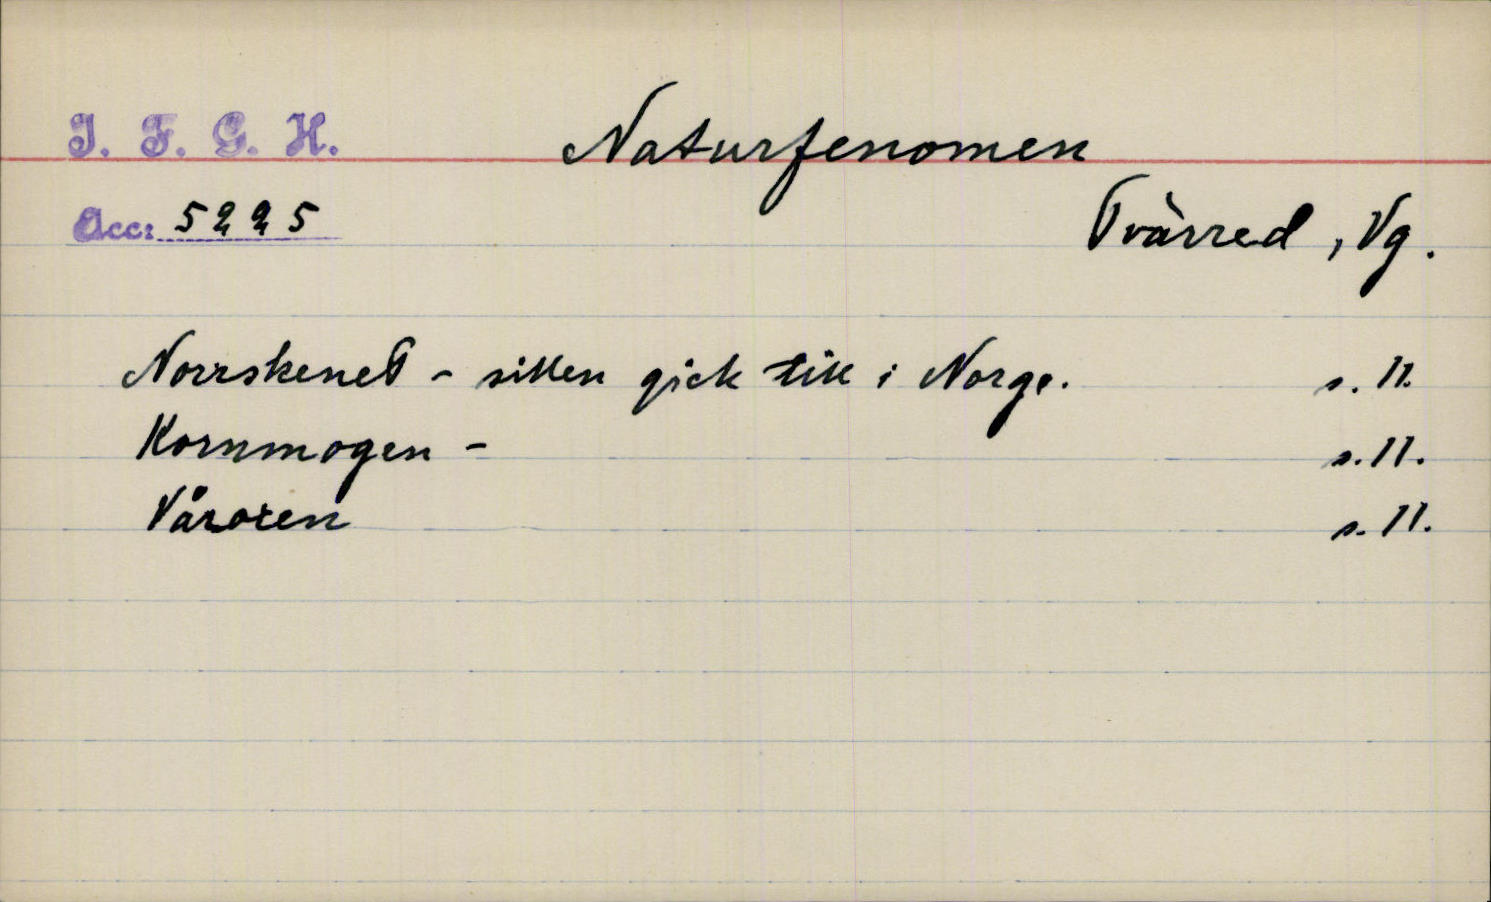 I. F. G. H.
Naturfenomen
Acc: 5225
Tvärred, Vg.
Norrskenet - sillen gick till i Norge. s. 11.
Kornmogen - s. 11.
Våroxen s. 11.